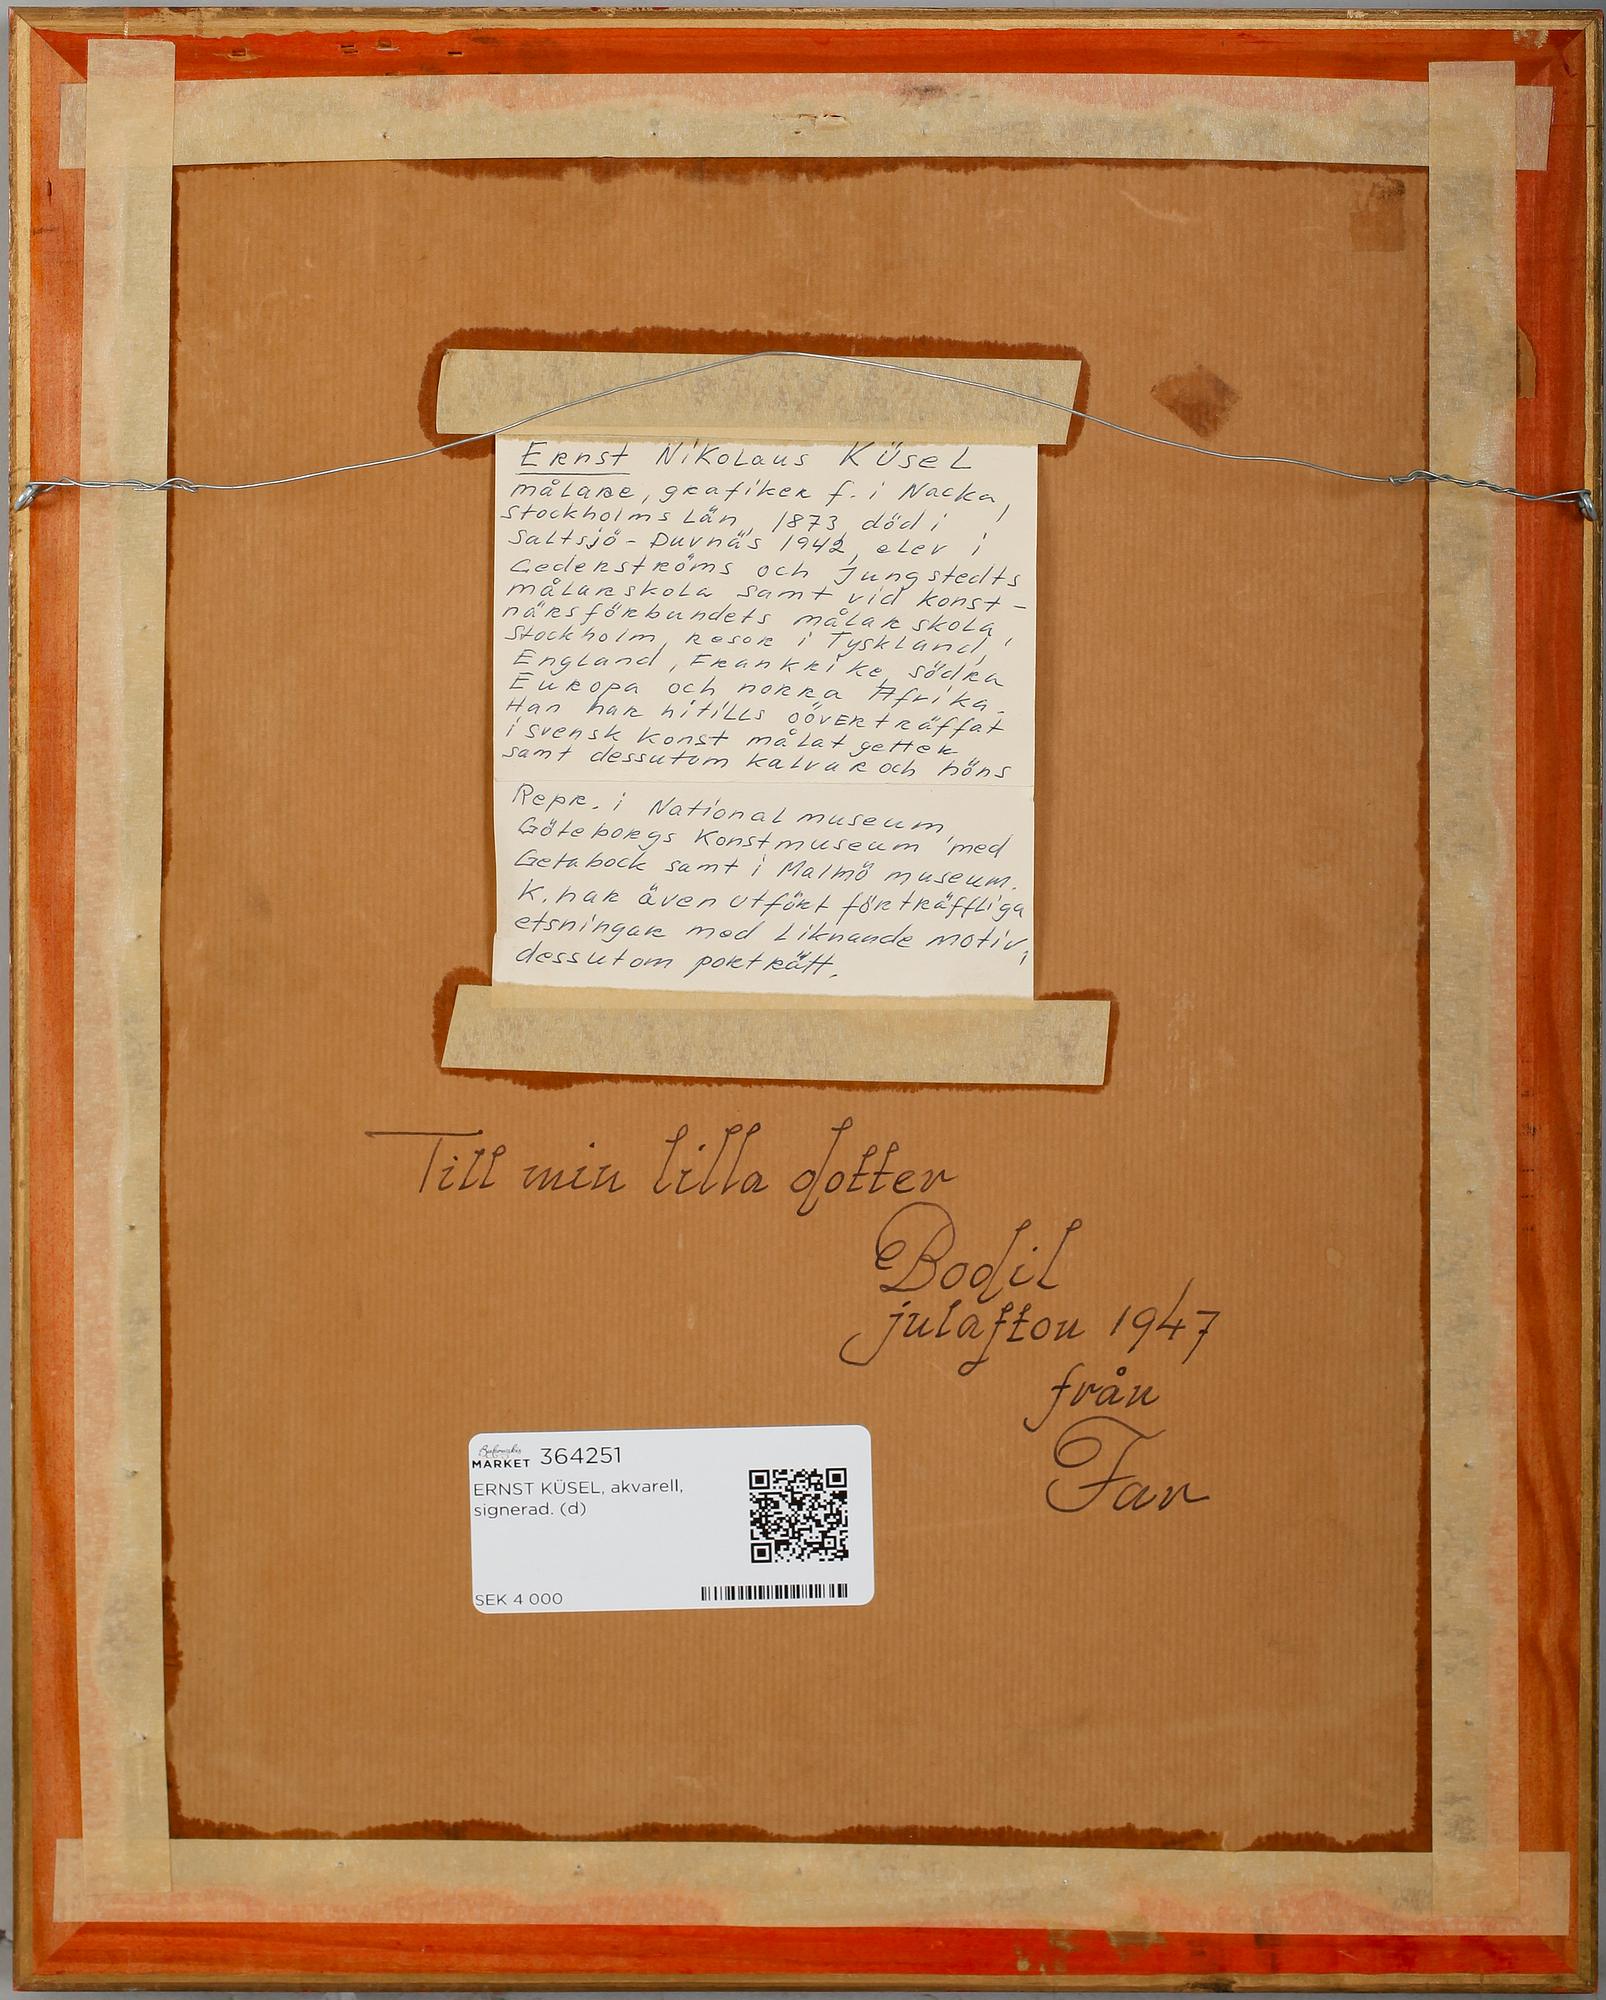 Ernst Nikolaus Küsel
målare, grafiker f. i Nacka,
Stockholms Län, 1873, död i
Saltsjö-Duvnäs 1942, elev i
Cederströms och Jungstedts
målarskola samt vid konst-
närsförbundets målarskola,
Stockholm, resor i Tyskland,
England, Frankrike, södra
Europa och norra Afrika.
Han har hitills oöverträffat
i svensk konst målat getter
samt dessutom kalvar och höns
Repr. i National museum,
Göteborgs Konstmuseum med
Getabock samt i Malmö museum.
K. har även utfört förträffliga
etsningar med liknande motiv,
dessutom porträtt.
Till min lilla dotter
Bodil
julafton 1947
från
Far
Bukowskis
MARKET 364251
ERNST KÜSEL, akvarell,
signerad. (d)
SEK 4 000